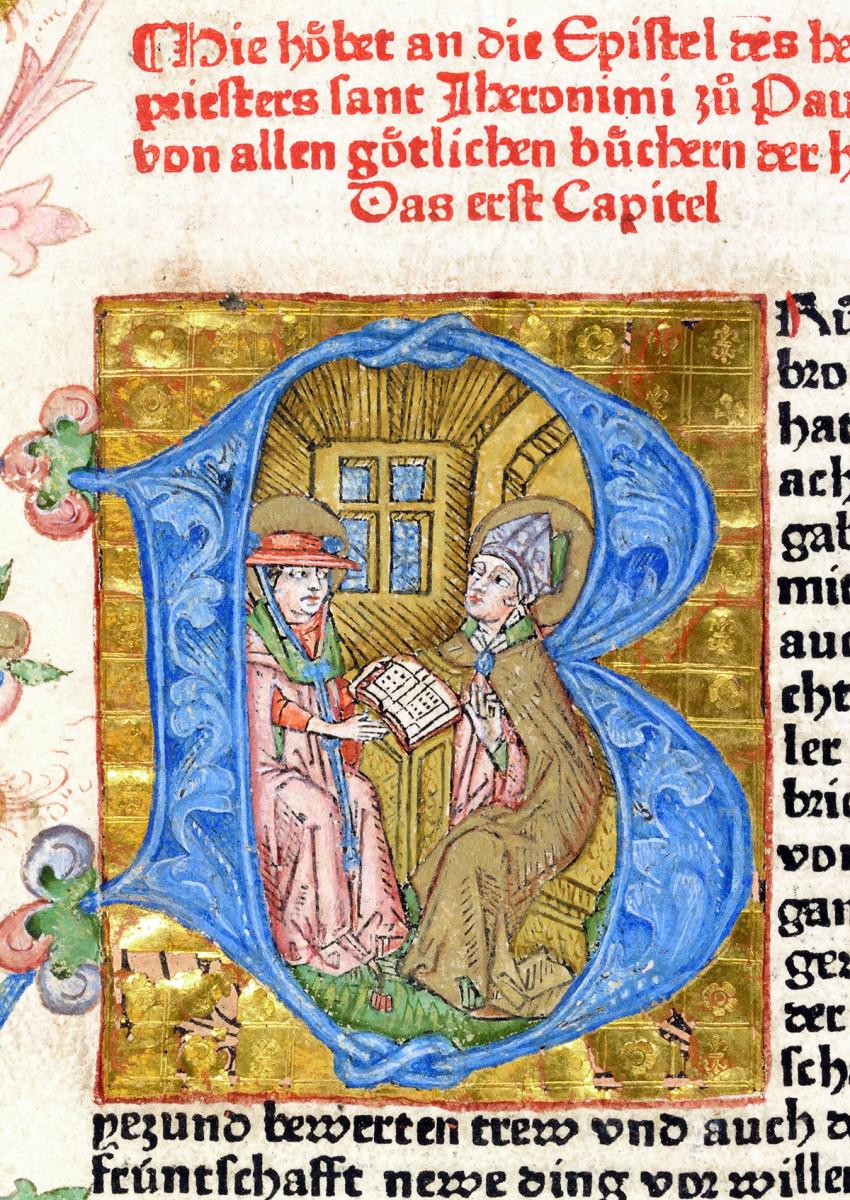 Hie hoͤbet an die Epistel des he
priesters sant Jheronimi zuͦ Pau
von allen goͤtlichen buͤchern der h
Das erst Capitel
B
Ruͦ
bro
hat
ach
gab
mit
auc
cht
ler
brie
von
gan
ger
der
sch
yezund bewerten trew vnd auch d
früntschafft newe ding vor willen